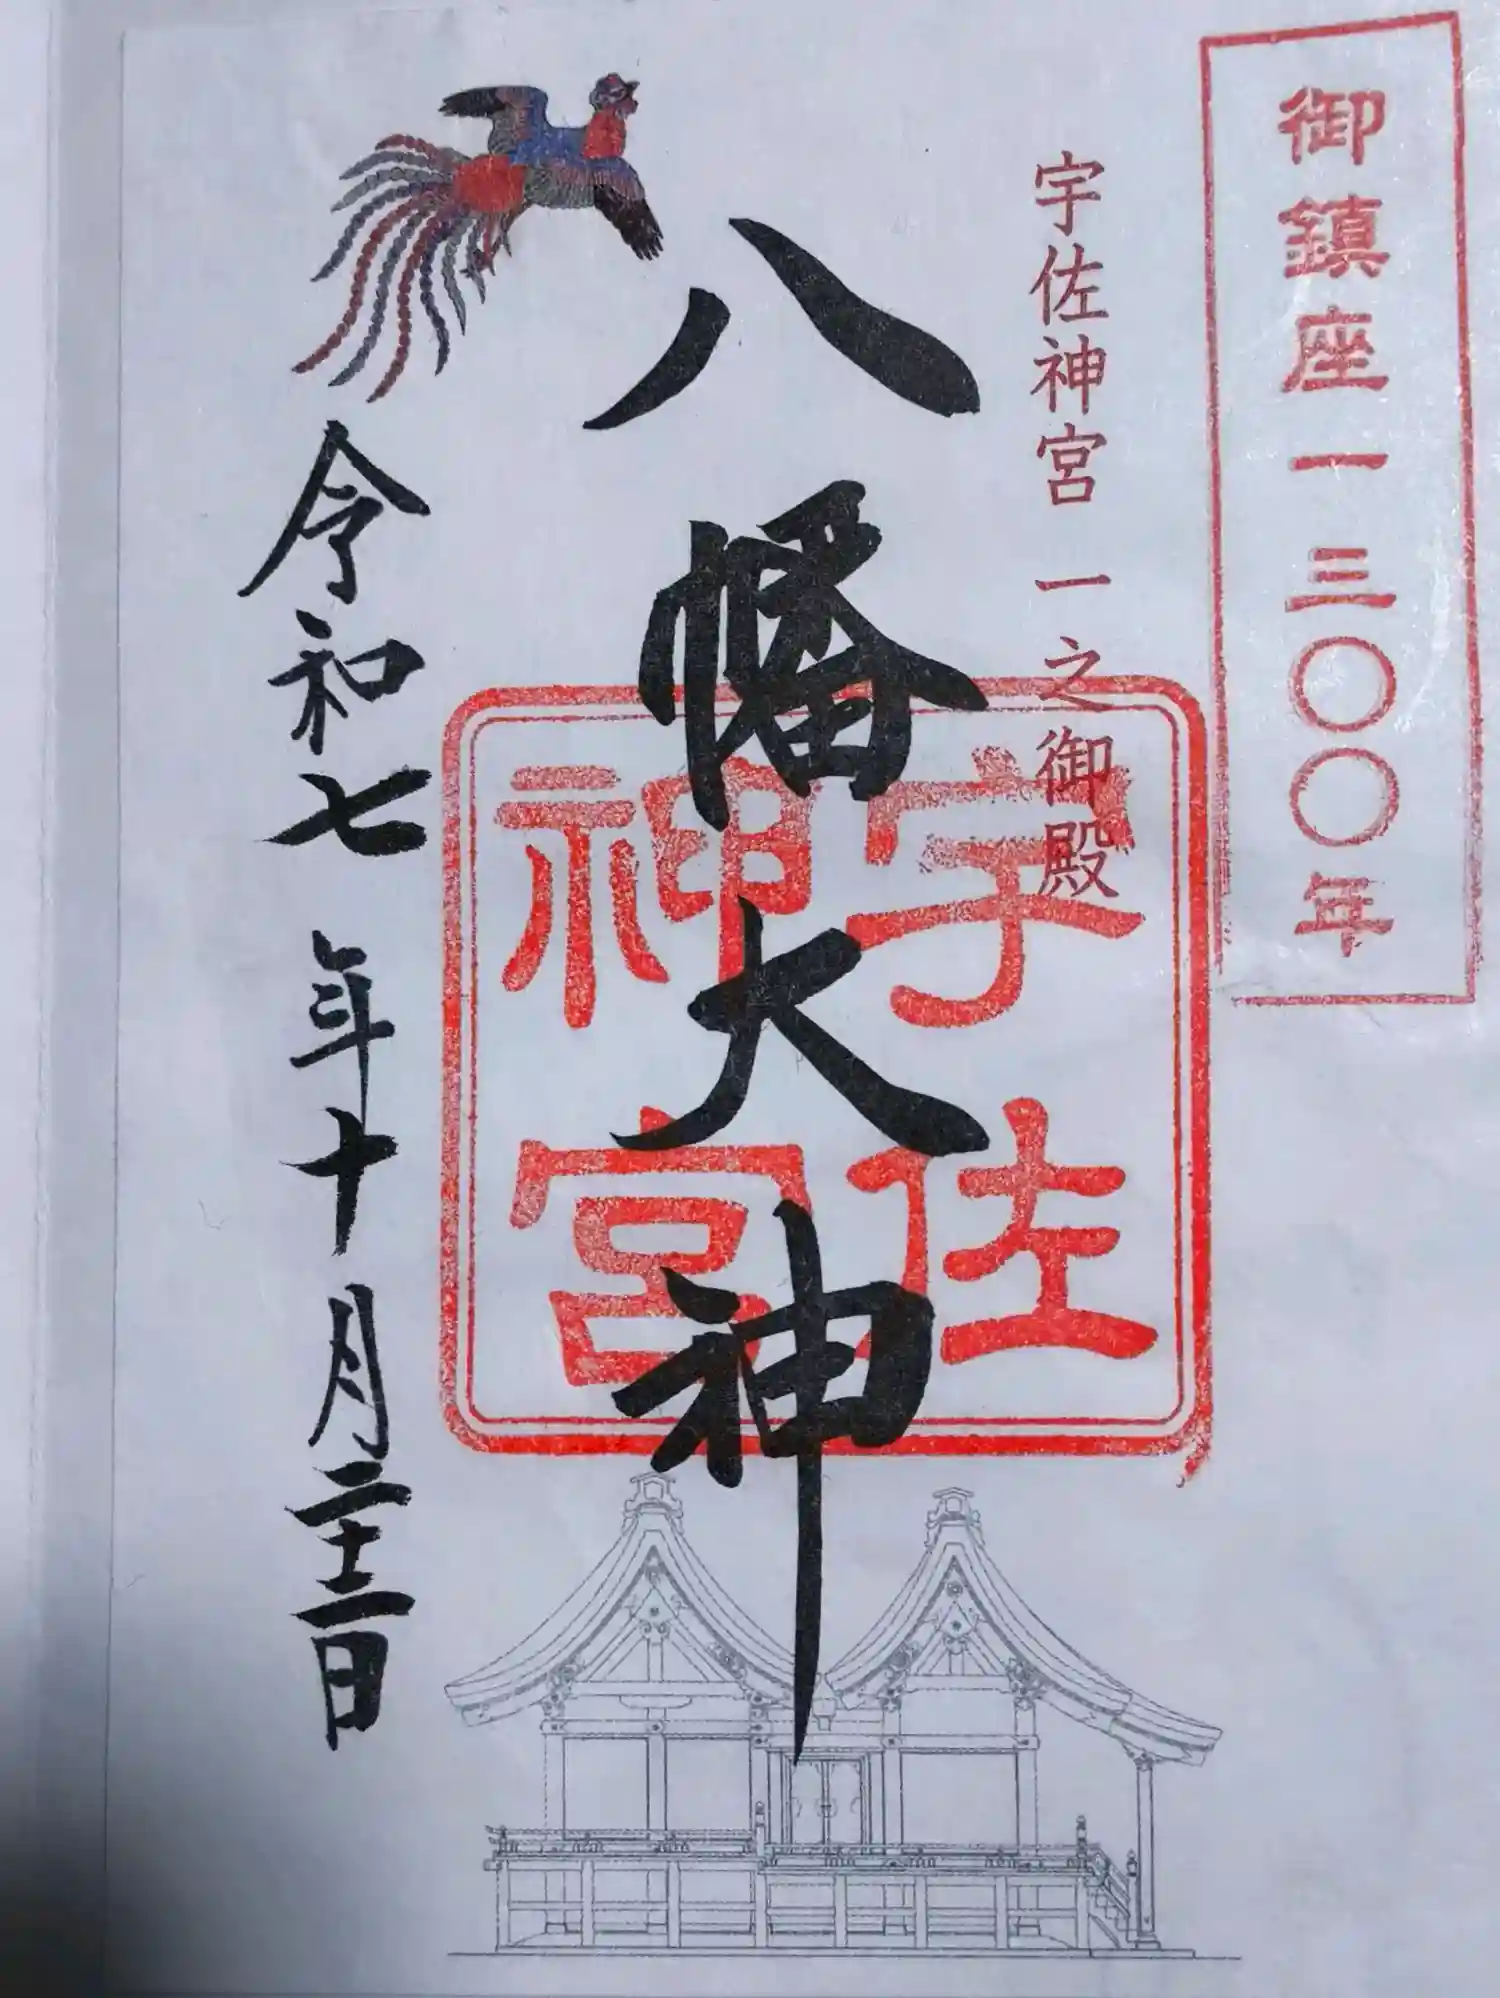 御鎮座一三〇〇年
宇佐神宮 一之御殿
八幡大神
宇佐
神宮
令和七年十月二十二日